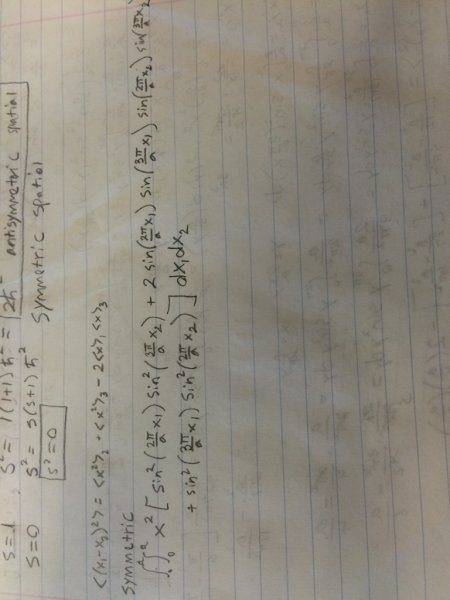 S=1, S² = 1(1+1)ħ² = 2ħ² antisymmetric spatial
S=0 S² = s(s+1)ħ² symmetric spatial
S²=0
<(x₁-x₂)²> = <x²>₂ + <x²>₃ - 2<x>₂<x>₃
symmetric
∫₀ᵃ∫₀ᵃ x² [ sin²(2π/a x₁) sin²(3π/a x₂) + 2 sin(2π/a x₁) sin(3π/a x₁) sin(2π/a x₂) sin(3π/a x₂)
+ sin²(3π/a x₁) sin²(2π/a x₂) ] dx₁dx₂